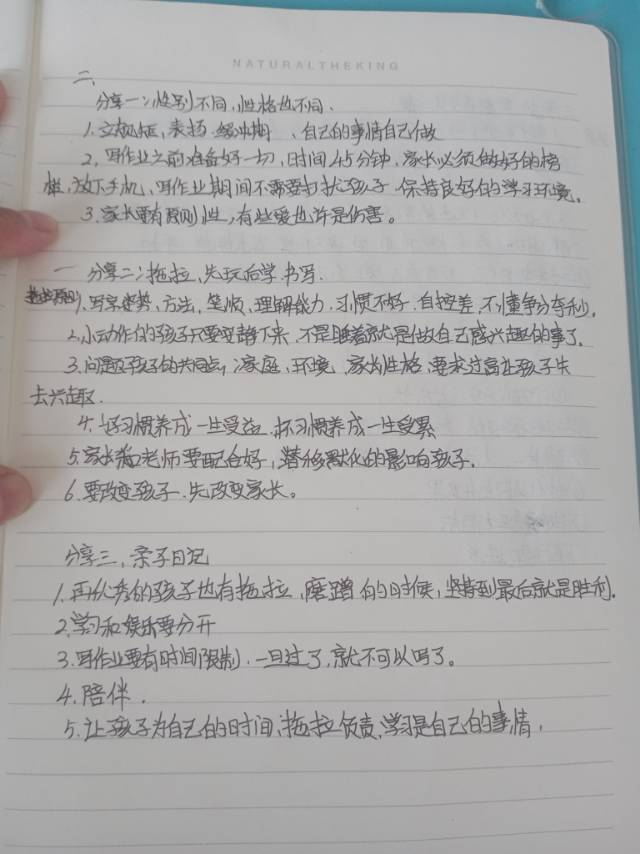 NATURALTHEKING
二、
分享一：性别不同，性格也不同．
1.立规矩，表扬．缓冲期、自己的事情自己做
2，写作业之前准备好一切，时间45分钟，家长必须做好的榜
样，放下手机，写作业期间不需要打扰孩子．保持良好的学习环境．
3.家长要有原则性，有些爱也许是伤害。
一 分享二：拖拉，先玩后学．书写．
1.写字姿势、方法，笔顺、理解能力．习惯不好．自控差．不懂争分夺秒．
2.小动作的孩子只要安静下来，不是睡着就是做自己感兴趣的事了．
3.问题孩子的共同点，家庭、环境、家长性格、要求过高让孩子失
去兴趣．
4.好习惯养成一生受益．坏习惯养成一生受累
5.家长和老师要配合好，潜移默化的影响孩子．
6.要改变孩子．先改变家长。
分享三，亲子日记
1.再优秀的孩子也有拖拉，磨蹭的时候，坚持到最后就是胜利．
2.学习和娱乐要分开
3.写作业要有时间限制．一旦过了，就不可以写了。
4.陪伴．
5.让孩子为自己的时间，拖拉负责，学习是自己的事情．